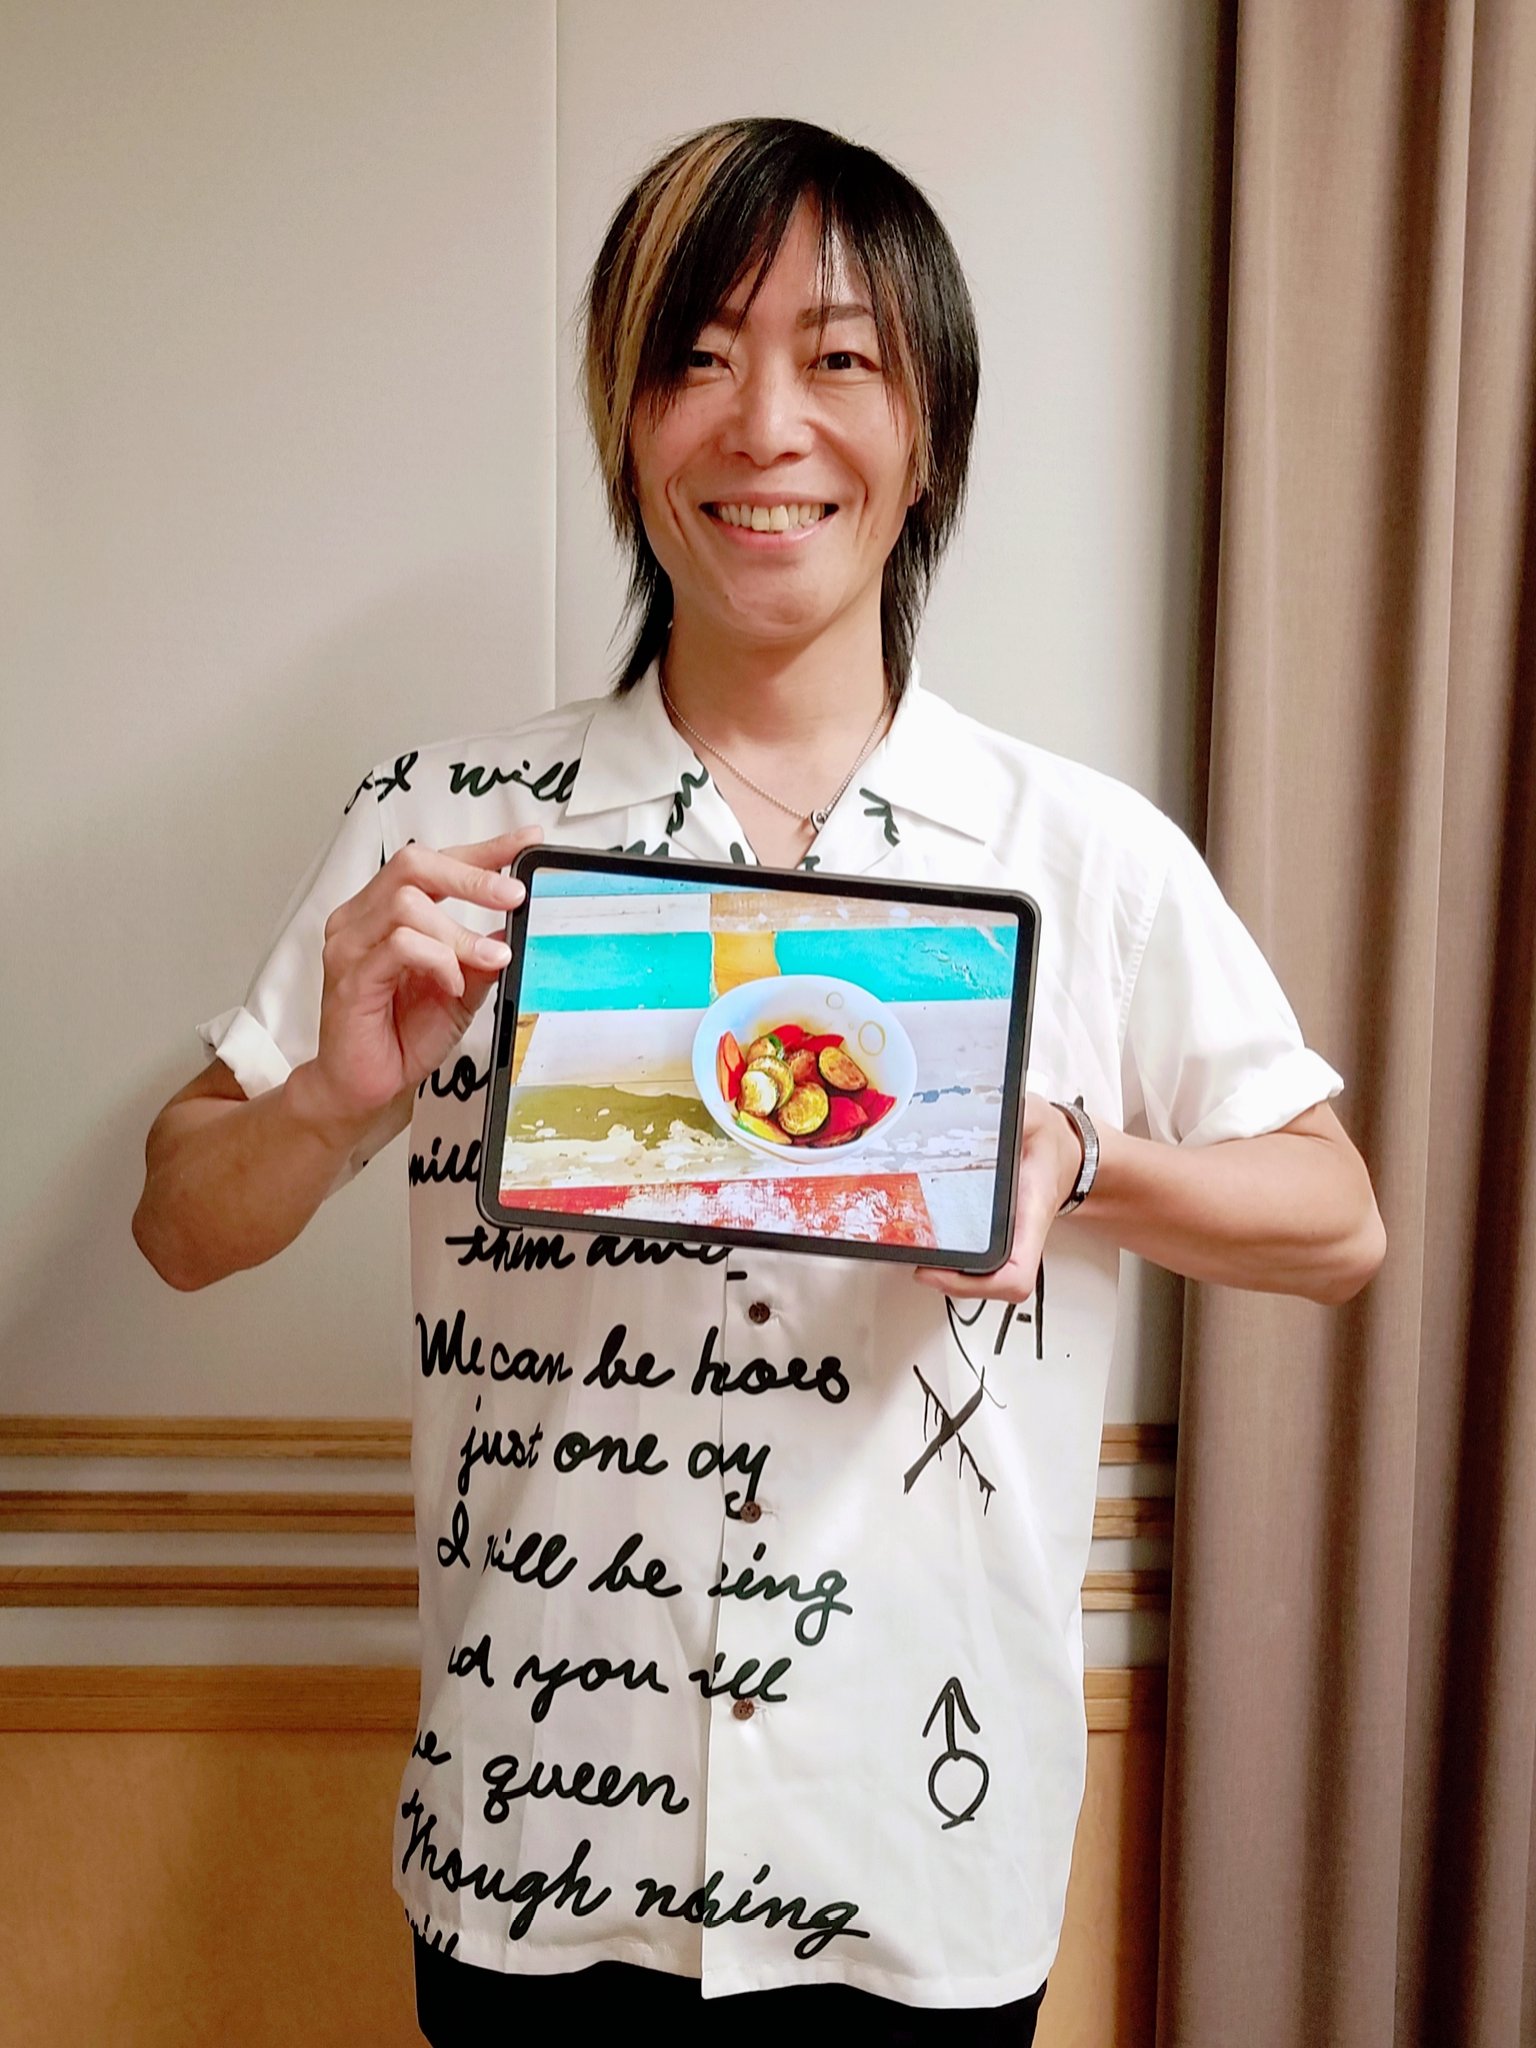 I will
them
We can be heroes
just one day
I will be king
you will
queen
Though nothing
will